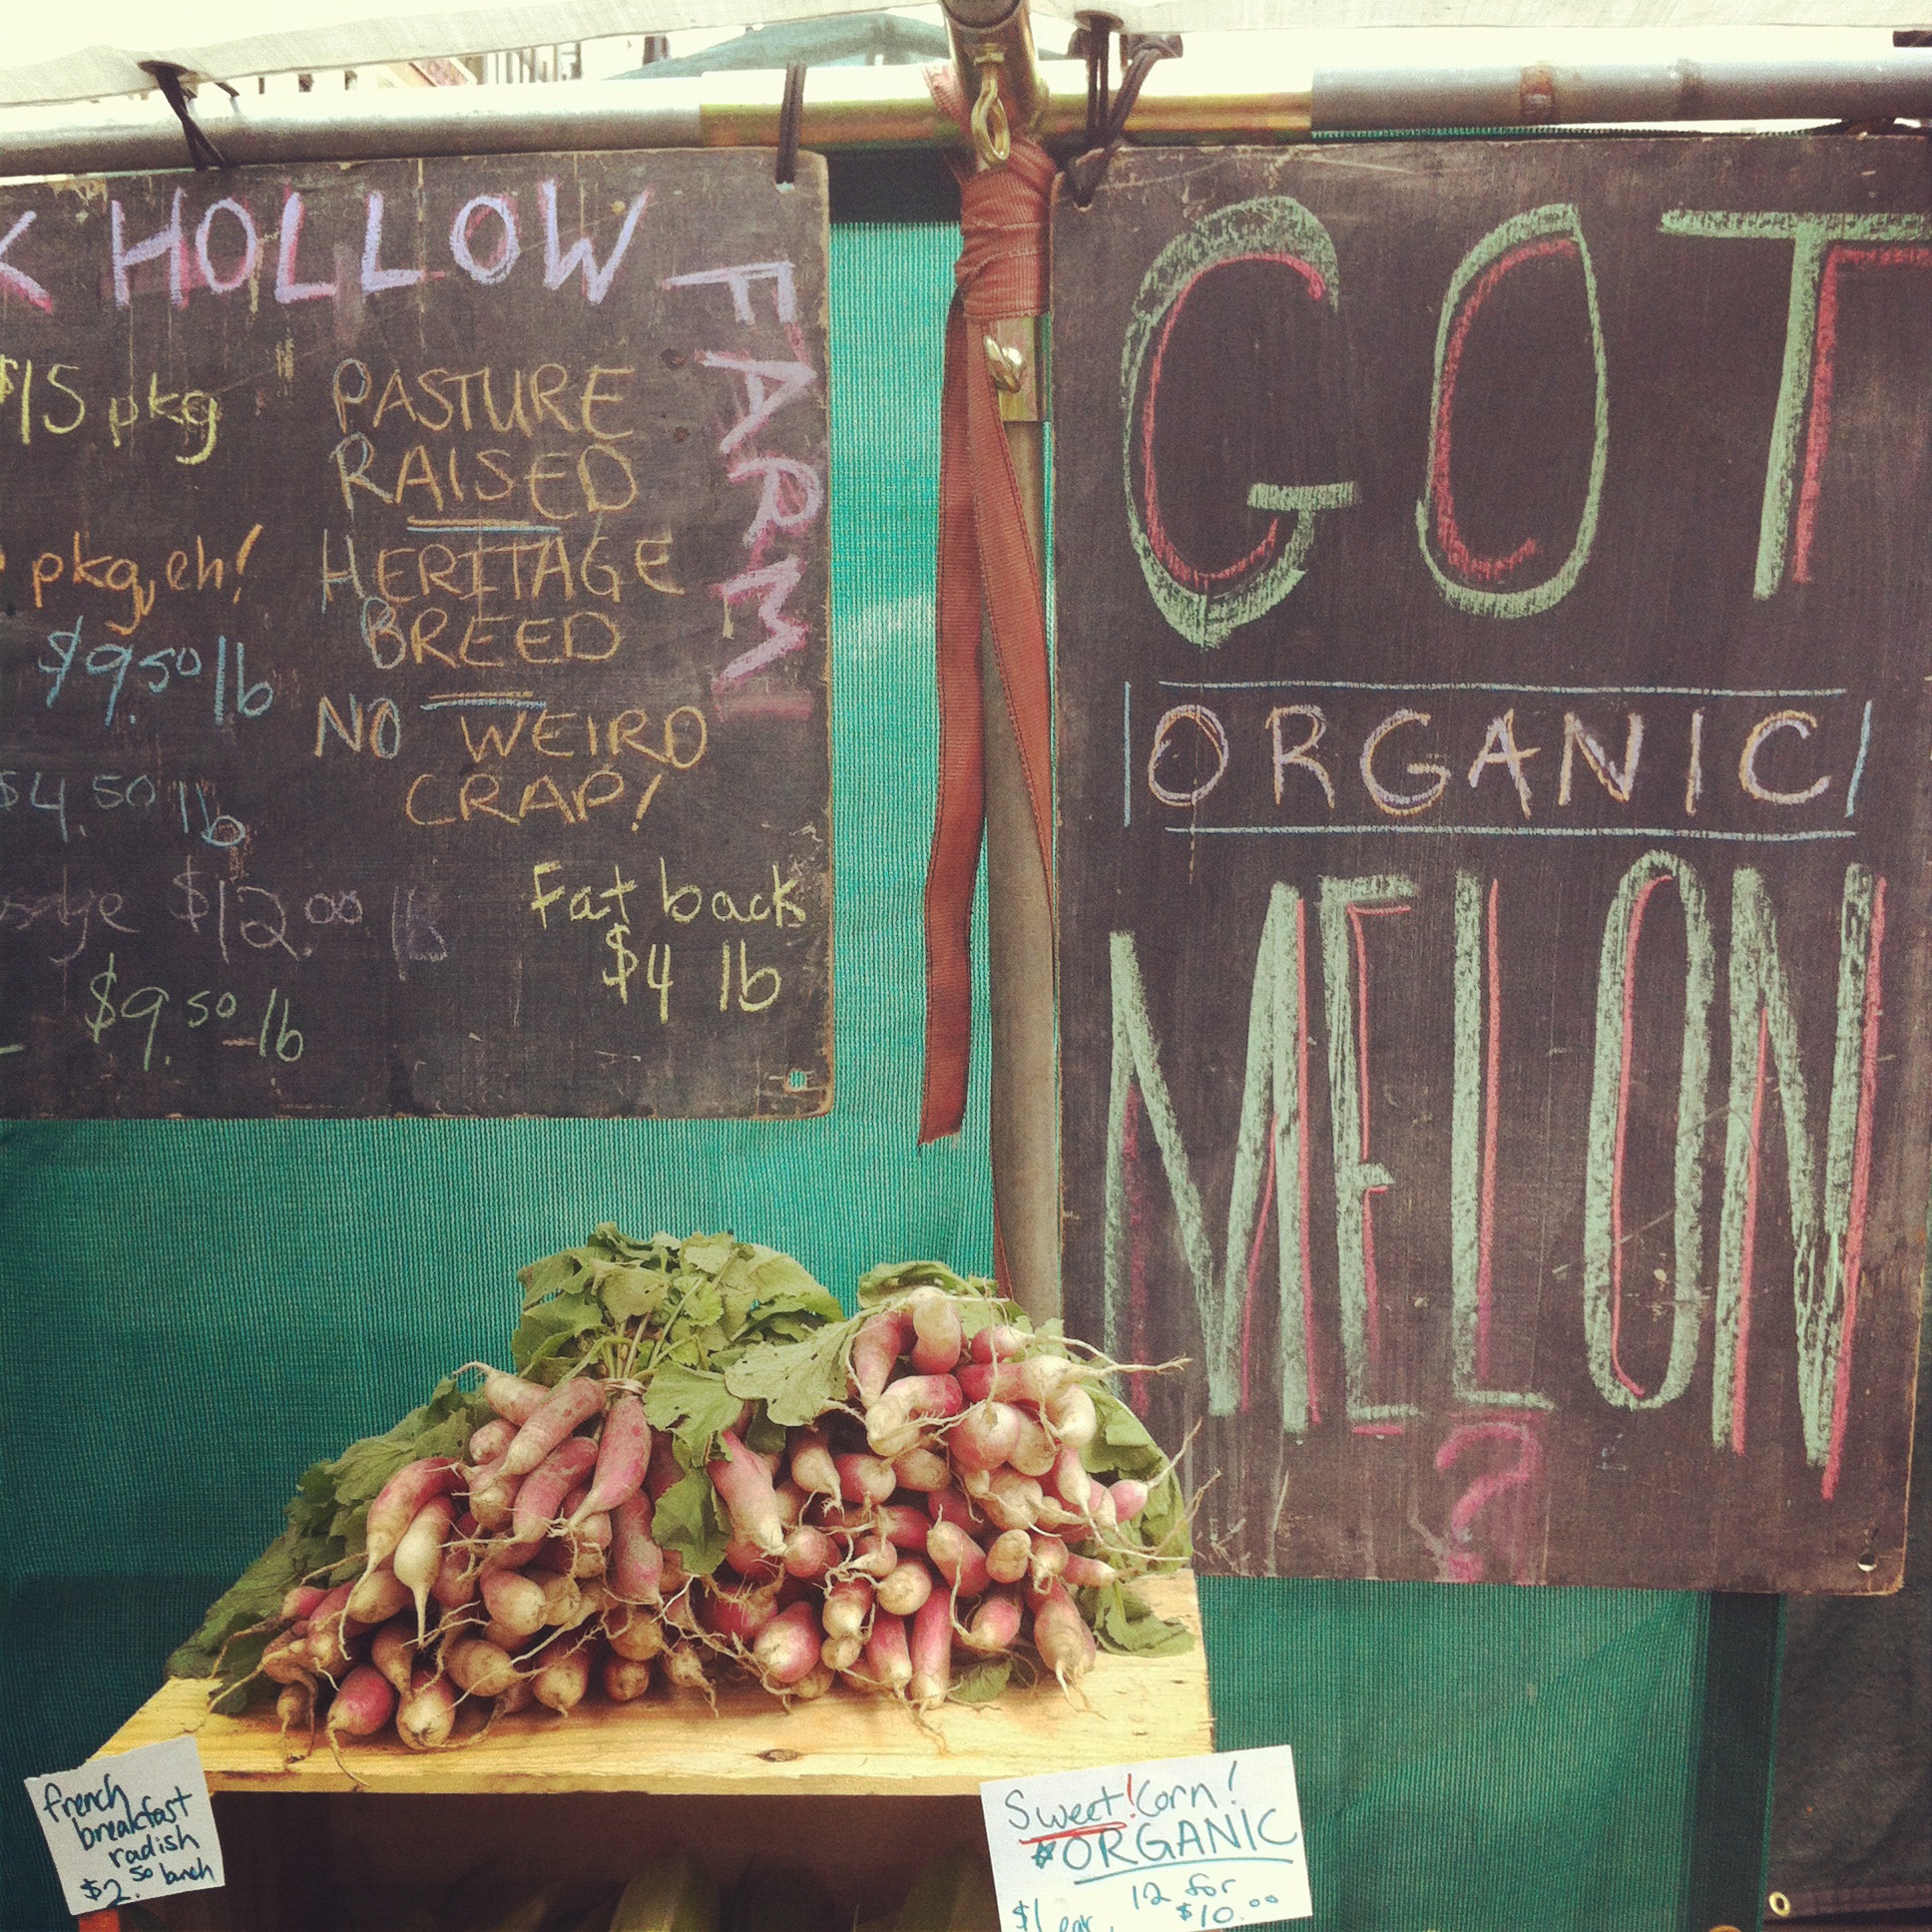 K HOLLOW FARM!
$15 pkg
pkg, eh!
$9.50 lb
$4.50 lb
$12.00 lb
$9.50 lb
PASTURE
RAISED
HERITAGE
BREED
NO WEIRD
CRAP!
Fat back
$4 lb
GOT
ORGANIC
MELON
?
french
breakfast
radish
$2.50 bunch
Sweet! Corn!
*ORGANIC
$1 ear, 12 for
$10.00